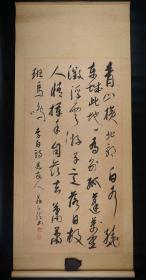 青山橫北郭白水繞
東城此地一為別孤蓬萬里
征浮雲游子意落日故
人情揮手自茲去蕭蕭
班馬鳴 李白詩送友人